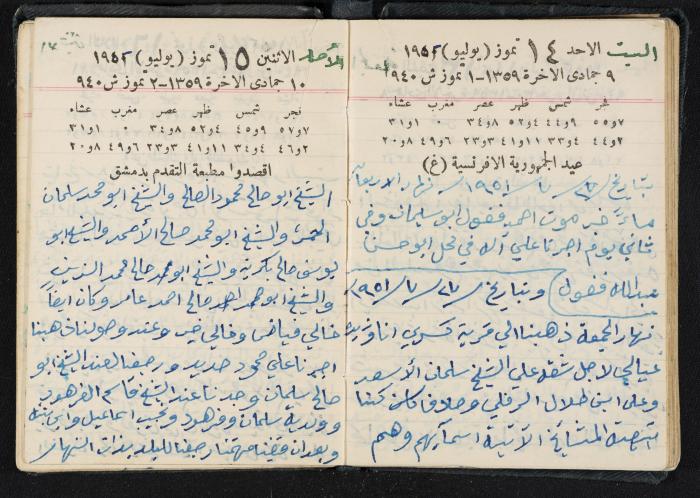 السبت
الاحد ١٤ تموز (يوليو) ١٩٥٢
٩ جمادى الآخرة ١٣٥٩-١ تموز ش ٩٤٠
فجر شمس ظهر عصر مغرب عشاء
٧و٥٥ ٩و٤٤ ٤و٥٢ ٨و٣٤ ٠ ١و٣١
٢و٤٤ ٤و٣٣ ١١و٤١ ٣و٢٣ ٦و٤٩ ٨و٢٠
عيد الجمهورية الافرنسية (غ)
بتاريخ ١٩٥١ نهار الاربعاء
خبر موت احمد فضول ابو سليمان وفي
ثاني يوم اجرنا علي الى في محل ابو حسن
عبدالله فضول وبتاريخ ٢٧/٧/١٩٥١
نهار الجمعة ذهبنا الى قرية انا و
عيالي لاجل على الشيخ سلمان الأسعد
وعلى ابن طلال وصادف كان كنا
المشايخ الآتية اسمآيهم وهم
الأحد
الاثنين ١٥ تموز (يوليو) ١٩٥٢
١٠ جمادى الآخرة ١٣٥٩-٢ تموز ش ٩٤٠
فجر شمس ظهر عصر مغرب عشاء
٧و٥٧ ٩و٤٥ ٤و٥٢ ٨و٣٤ ٠ ١و٣١
٢و٤٦ ٤و٣٤ ١١و٤١ ٣و٢٣ ٦و٤٩ ٨و٢٠
اقصدوا مطبعة التقدم بدمشق
الشيخ ابو صالح محمود الصالح والشيخ ابو محمد سلمان
والشيخ ابو محمد صالح الأحمد والشيخ ابو
يوسف صالح بكرية والشيخ ابو محمد صالح محمد الزين
والشيخ ابو محمد احمد صالح احمد عامر وكان ايضاً
خالي فياض وخالي خير وعند وصولنا ذهبنا
اجرنا علي حمود حديد ورجعنا لعند الشيخ ابو
صالح سليمان وجدنا عند الشيخ قاسم الفرهود
وولديه سلمان وفرهود ونجيب اسماعيل وابن
وبعد ان قضينا مهمتنا رجعنا للبلد بذات النهار